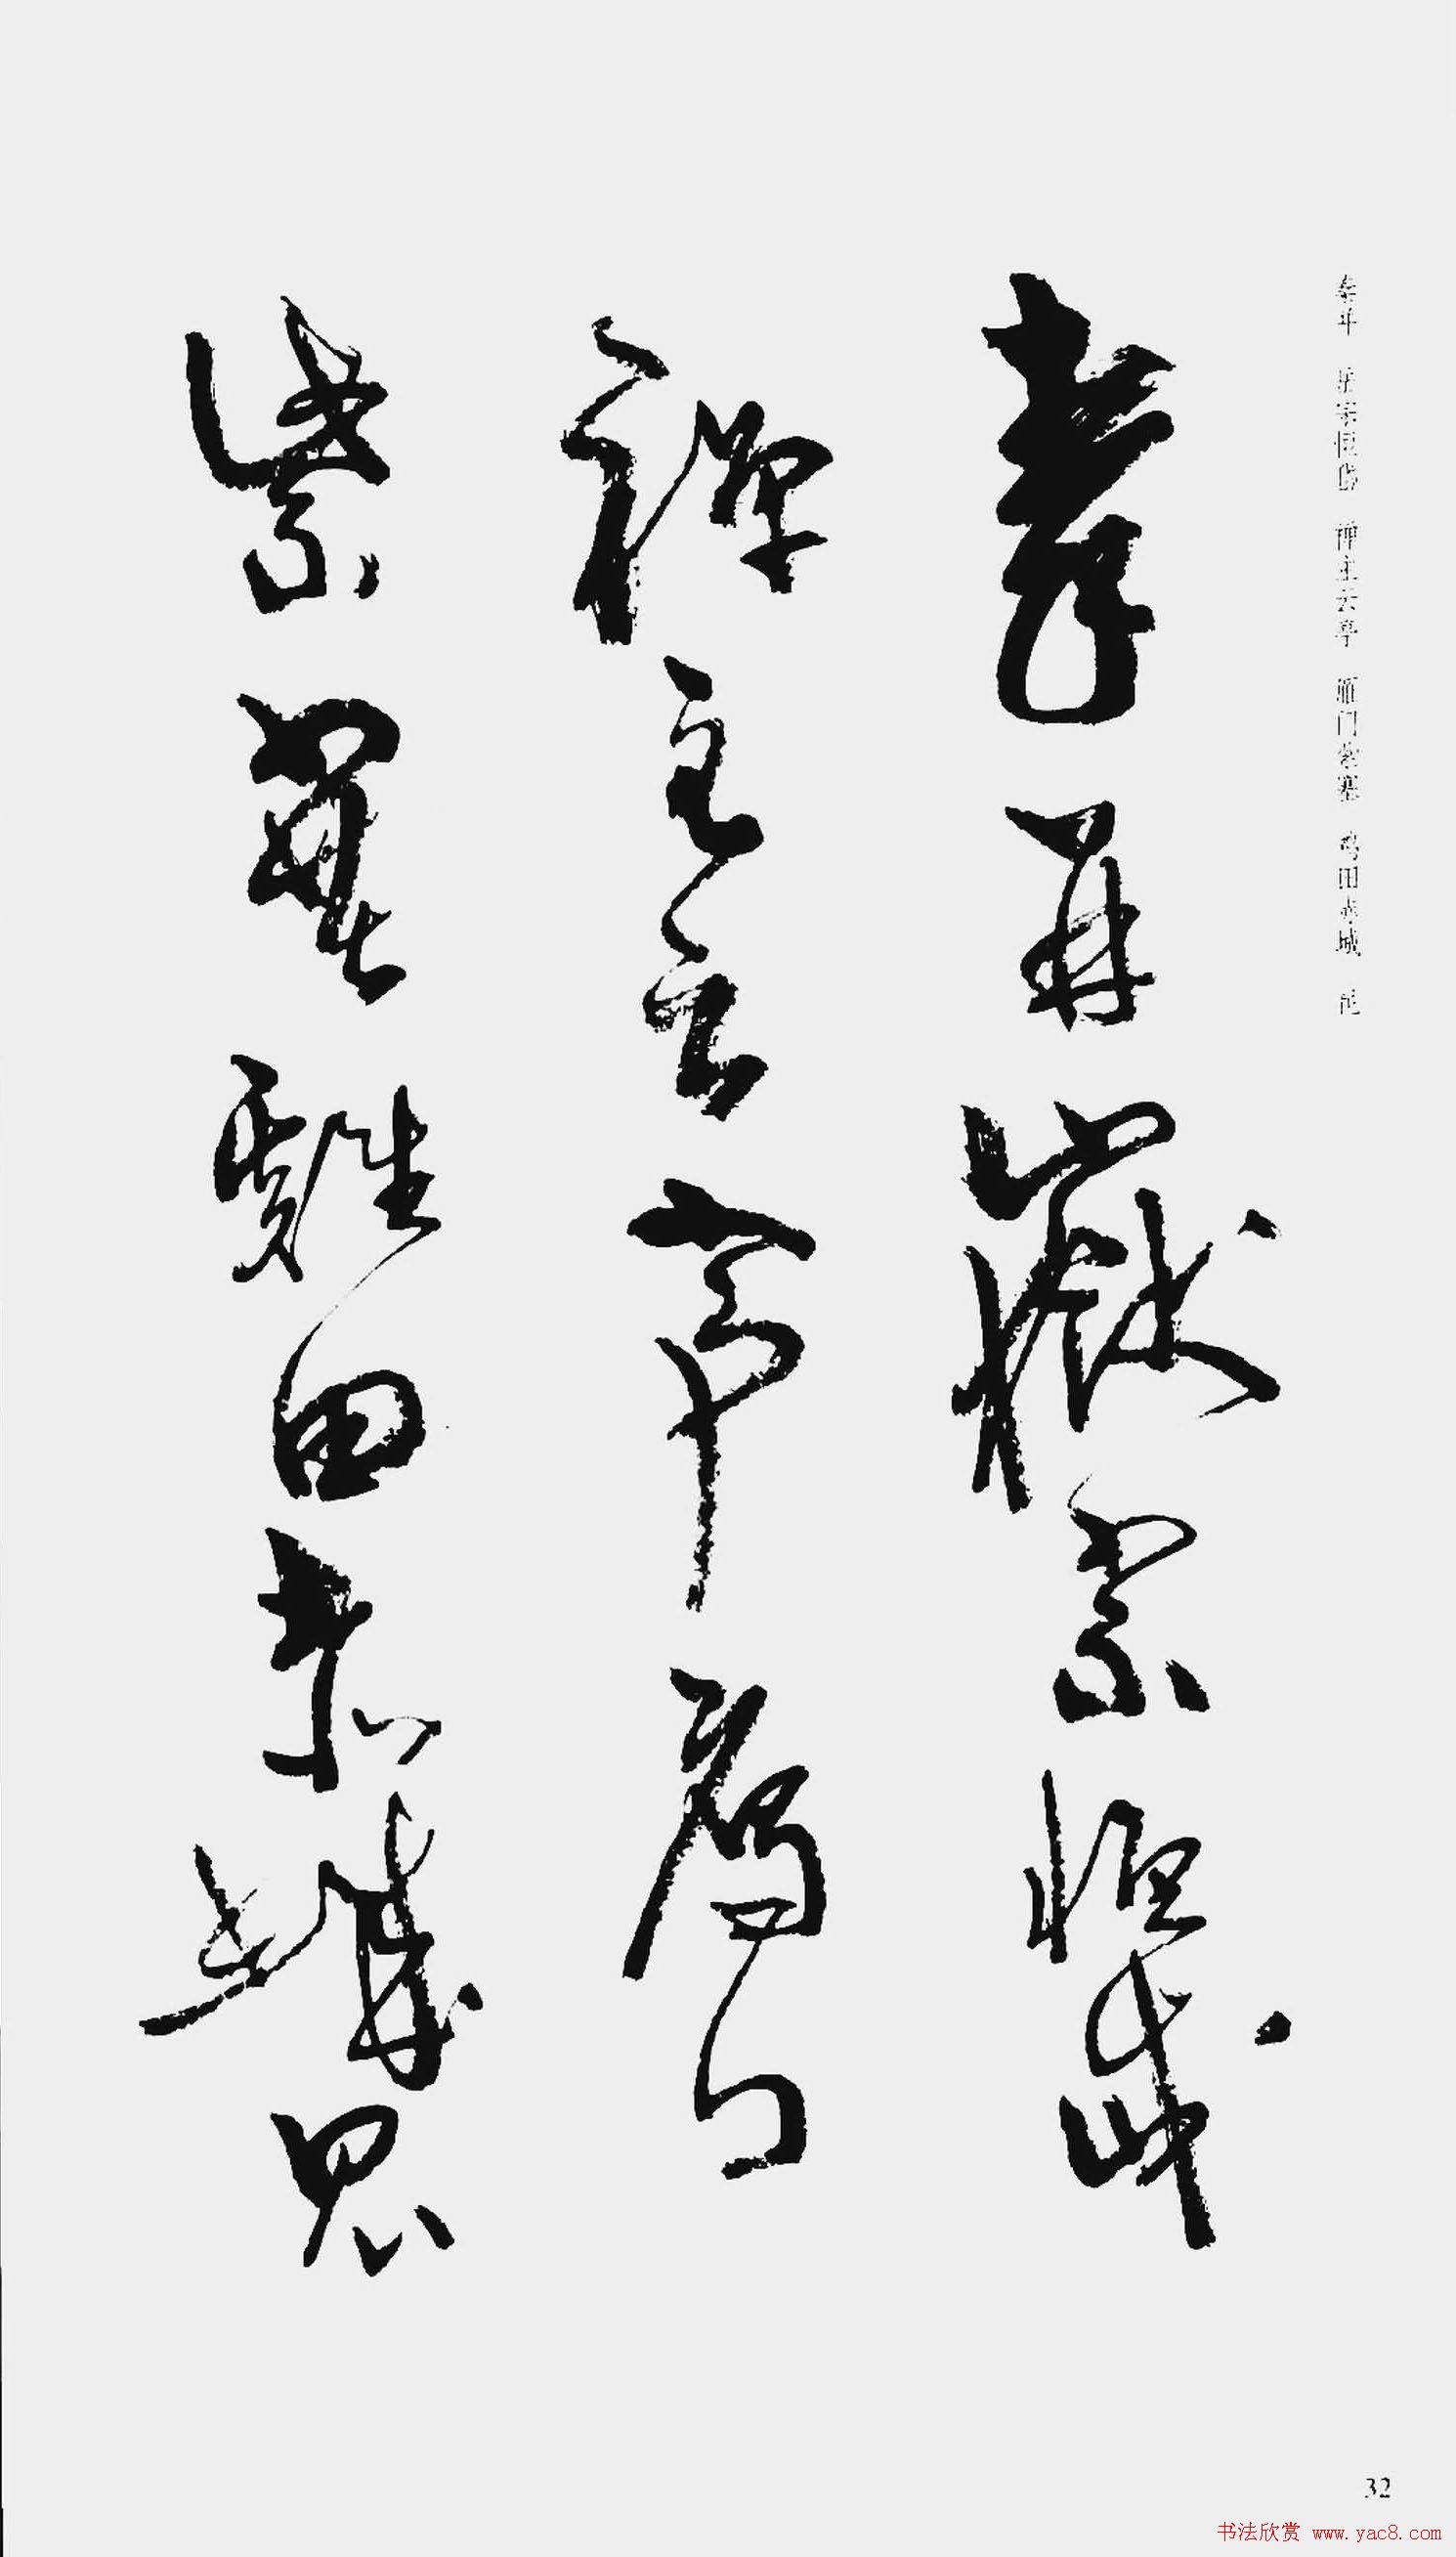 秦并 岳宗恒岱 禅主云亭 雁门紫塞 鸡田赤城 昆
秦并嶽宗恒岱
禪主云亭鴈門
紫塞雞田赤城昆
32
书法欣赏 www.yac8.com